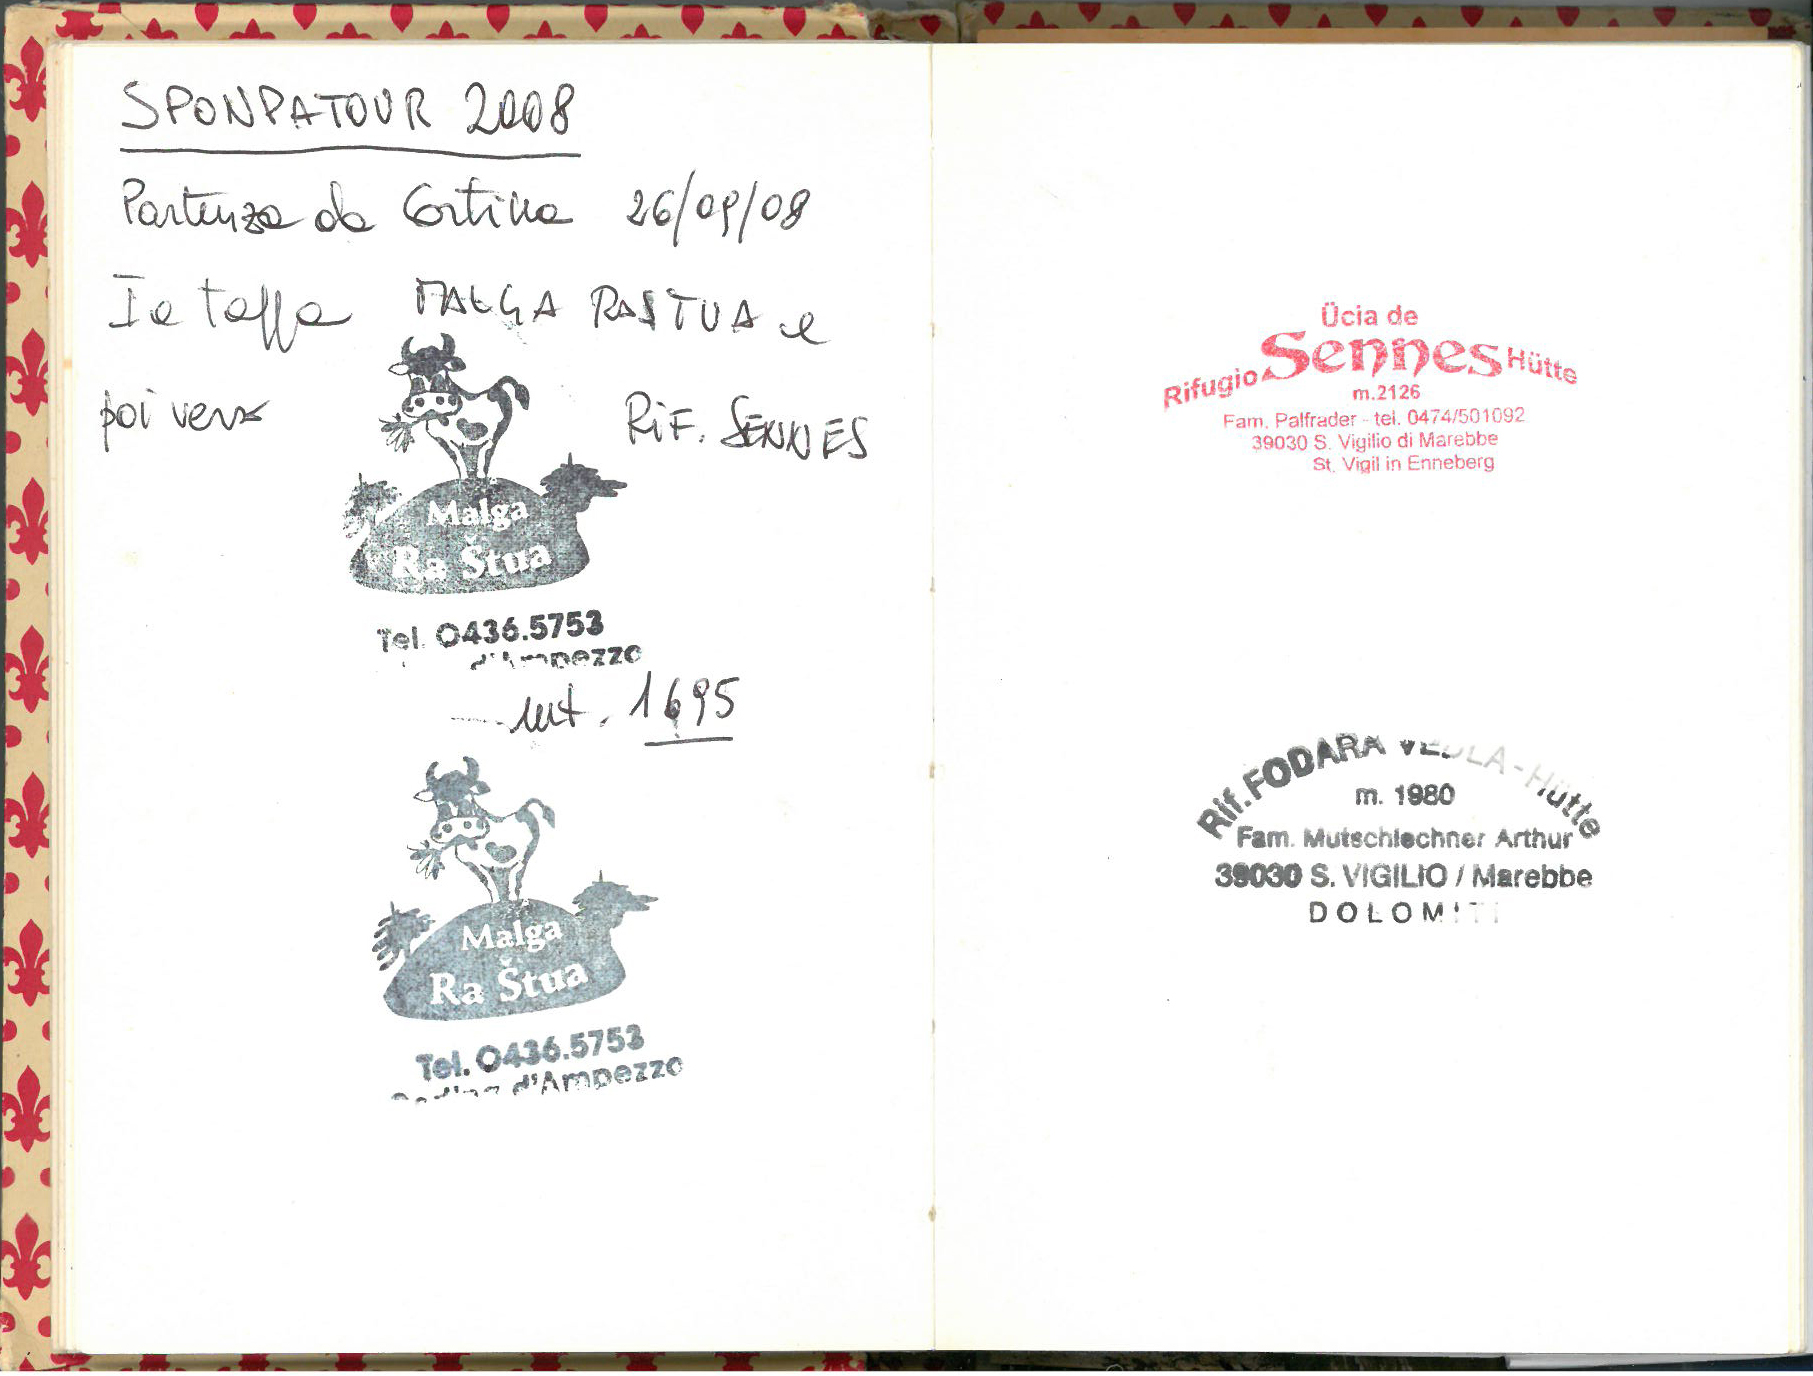 SPONPATOUR 2008
Partenza da Cortina 26/09/08
Ia tappa MALGA RASTUA e
poi verso RIF. SENNES
Malga
Ra Štua
Tel. 0436.5753
d'Ampezzo
mt. 1695
Malga
Ra Štua
Tel. 0436.5753
Cortina d'Ampezzo
Ücia de
Rifugio Sennes Hütte
m.2126
Fam. Palfrader - tel. 0474/501092
39030 S. Vigilio di Marebbe
St. Vigil in Enneberg
Rif. FODARA VEDLA-Hütte
m. 1980
Fam. Mutschlechner Arthur
39030 S. VIGILIO / Marebbe
DOLOMITI